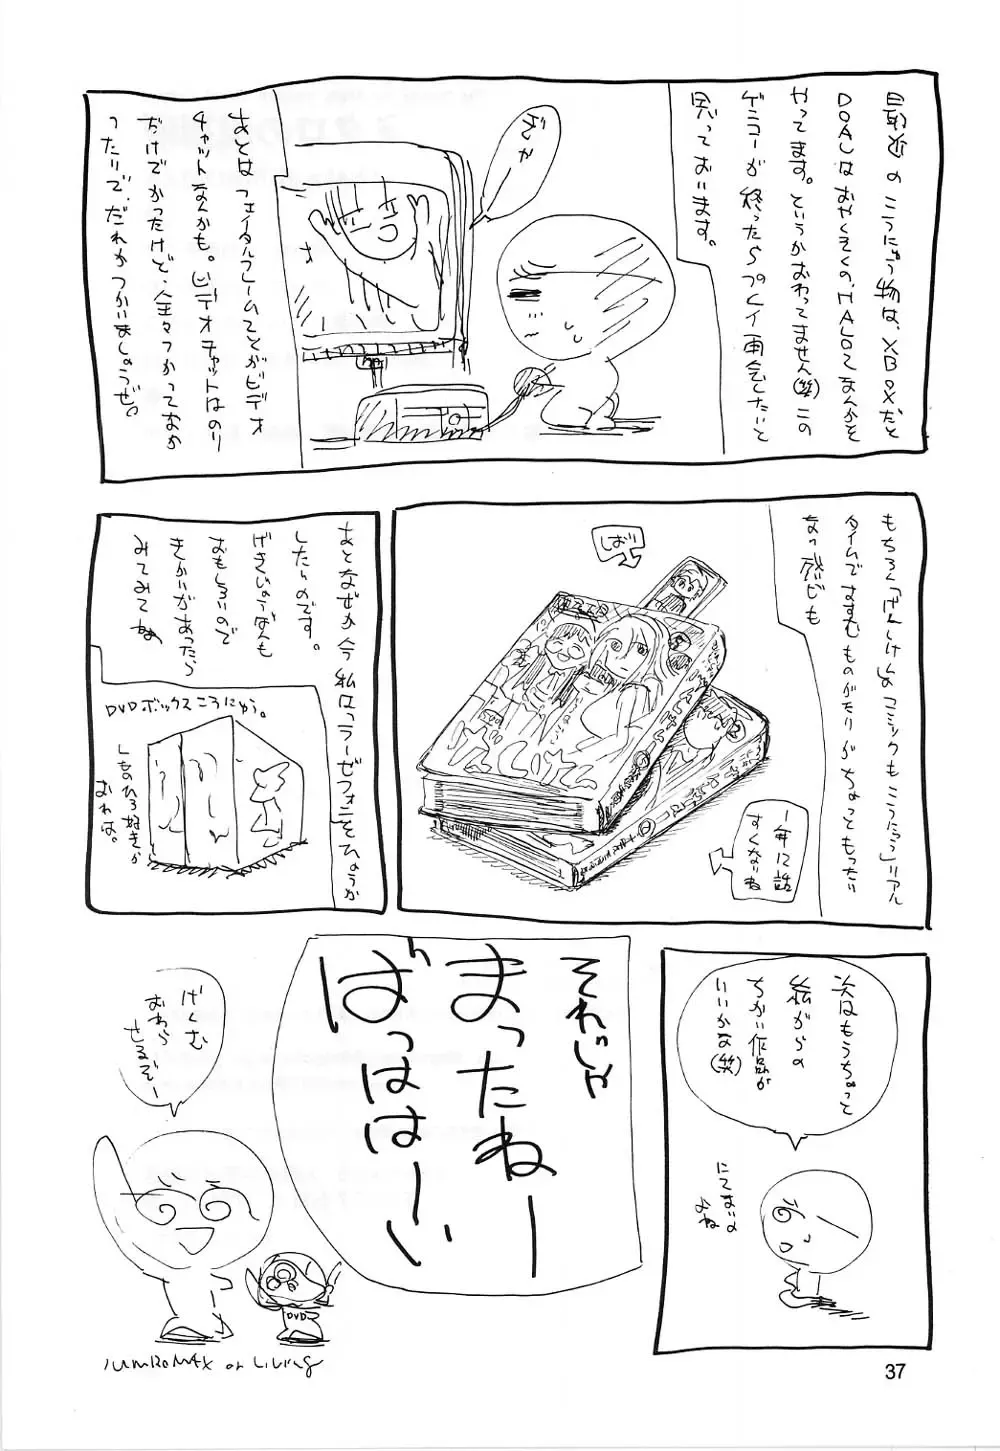 最近のこうにゅう物は、XBOXだと
DOAUはおやくそくの、HALOてなんかを
やってます。というかおわってません(笑)この
ゲンコーが終ったらプレイ再会したいと
思っております。
ぎゃ
あとはフェイタルフレームてとかビデオ
チャットなんかも。ビデオチャットはのり
だけでかったけど、全々つかっておか
ったりで、だれかつかいましょうぜ。
もちろん「げんしけん」のコミックもこうにゅう」リアル
タイムですすむものがたりがちょっともったい
ない感じも
しおり
1年12話
すくないね
あとなぜか今私は、ラーゼフォンをひょうか
したいのです。
げきじょうばんも
おもしろいので
きかいがあったら
みてみてね
DVDボックスこうにゅう。
しものひろ好きか
おれは。
次はもうちょっと
絵がらの
ちかい作品が
いいかな(笑)
にてないの
よね
それじゃ
まったねー
ばっはは〜い
げくむ
おわら
せるぞー
DVD
JUMROMAX or Living
37